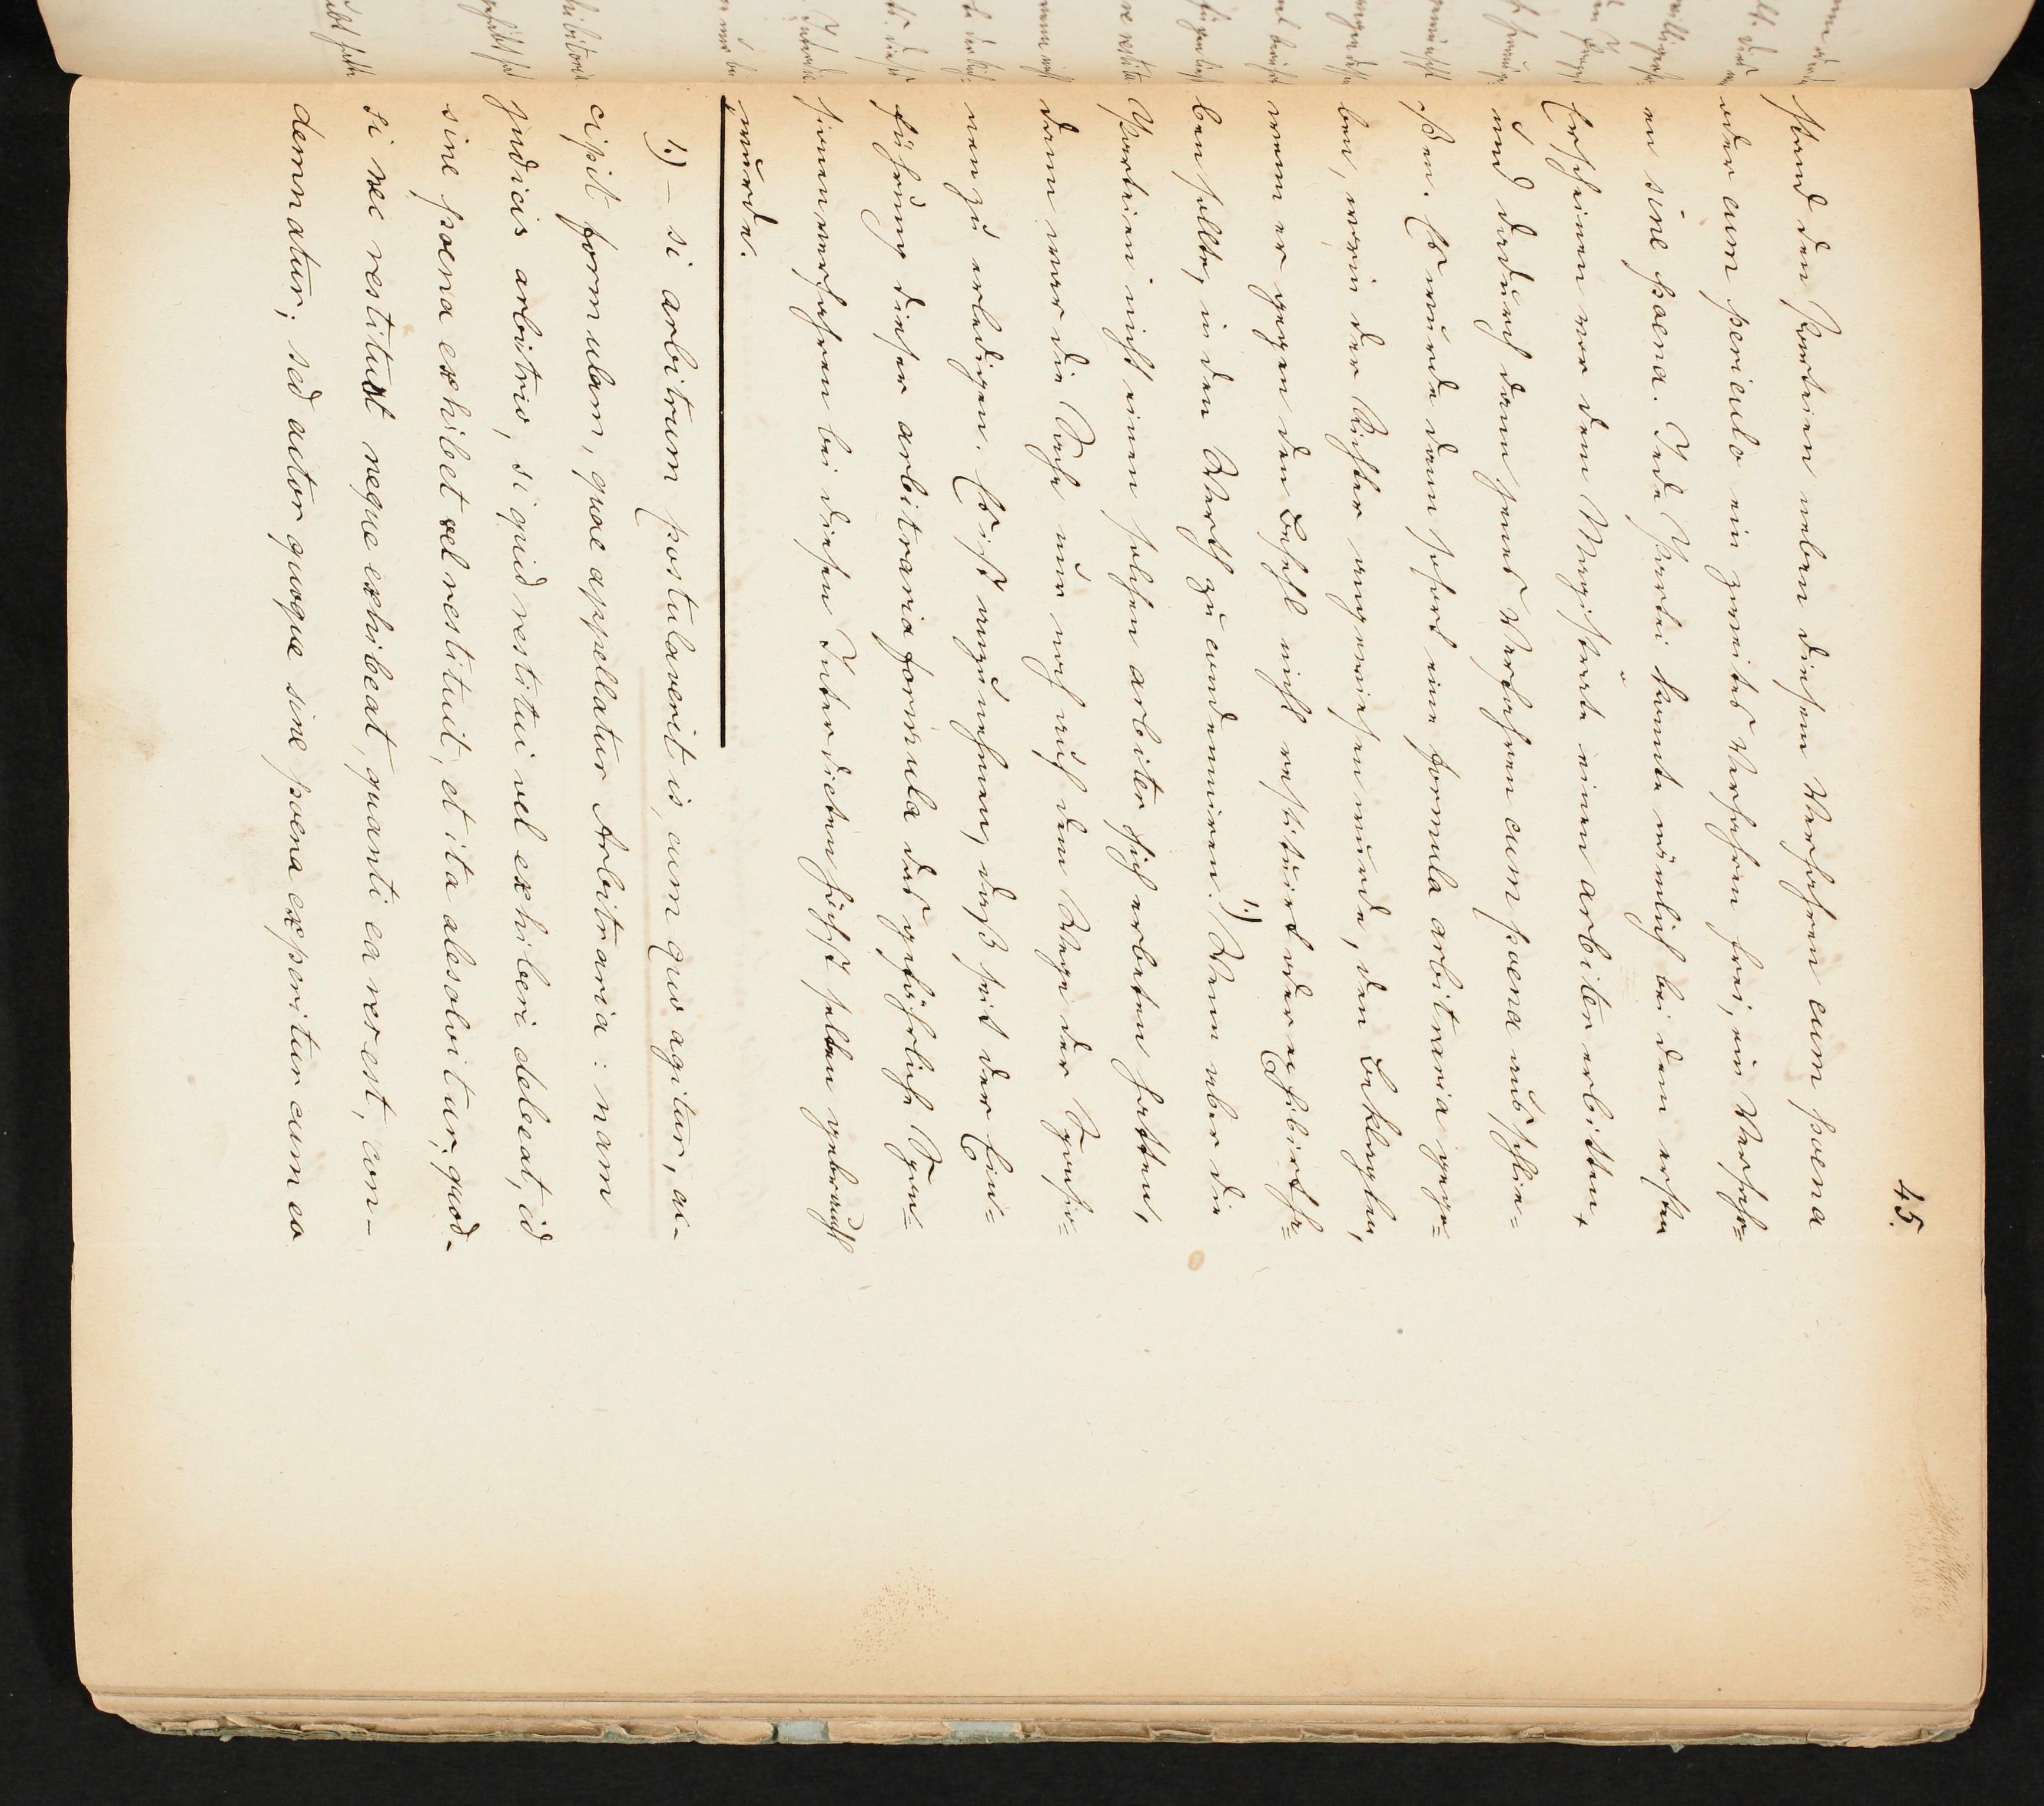 45.
stand den Parteien neben diesem Verfahren cum poena
oder cum periculo ein zweites Verfahren frei, ein Verfah=
en sine poena. Jede Partei konnte nämlich bei dem ersten
Erscheinen vor dem Magistrate einen arbiter erbitten,
und dadurch dann jenes Verfahren cum poena ausschlie=
ßen. Es wurde dann sofort eine formula arbitraria gege=
ben, worin der Richter angewiesen wurde, den Beklagten,
wenn er gegen den Befehl nicht restituirt oder exhibirt ha=
ben sollte, in den Werth zu condemniren. 1.) Wenn aber die
Parteien nicht einen solchen arbiter sich erbeten hatten,
dann war die Sache nur noch auf dem Wege der Sponsio=
nen zu erledigen. Es ist anzunehmen, daß seit der Ein=
führung dieser arbitraria formula das gefährliche Spon=
sionenverfahren bei diesen Interdicten höchst selten gebraucht
wurde.
1.) – si arbitrum postulaverit is, cum quo agitur, ac-
cipit formulam, quae appellatur Arbitraria: nam
judicis arbitrio, si quid restitui vel exhiberi debeat, id
sine poena exhibet vel restituit, et ita absolvitur; quod-
si nec restituat neque exhibeat, quanti ea res est, con-
demnatur; sed actor quoque sine poena experitur cum eo